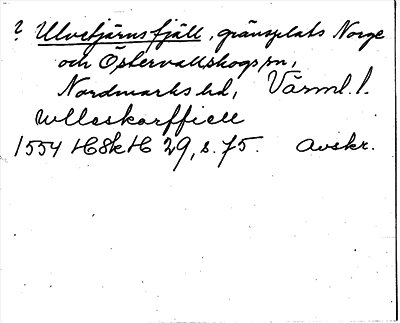 ? Ulvetjärnsfjäll, gränsplats Norge
och Östervallskogs sn,
Nordmarks hd, Värml. l.
wllaskorffiell
1554 HSkH 29, s. 75. Avskr.